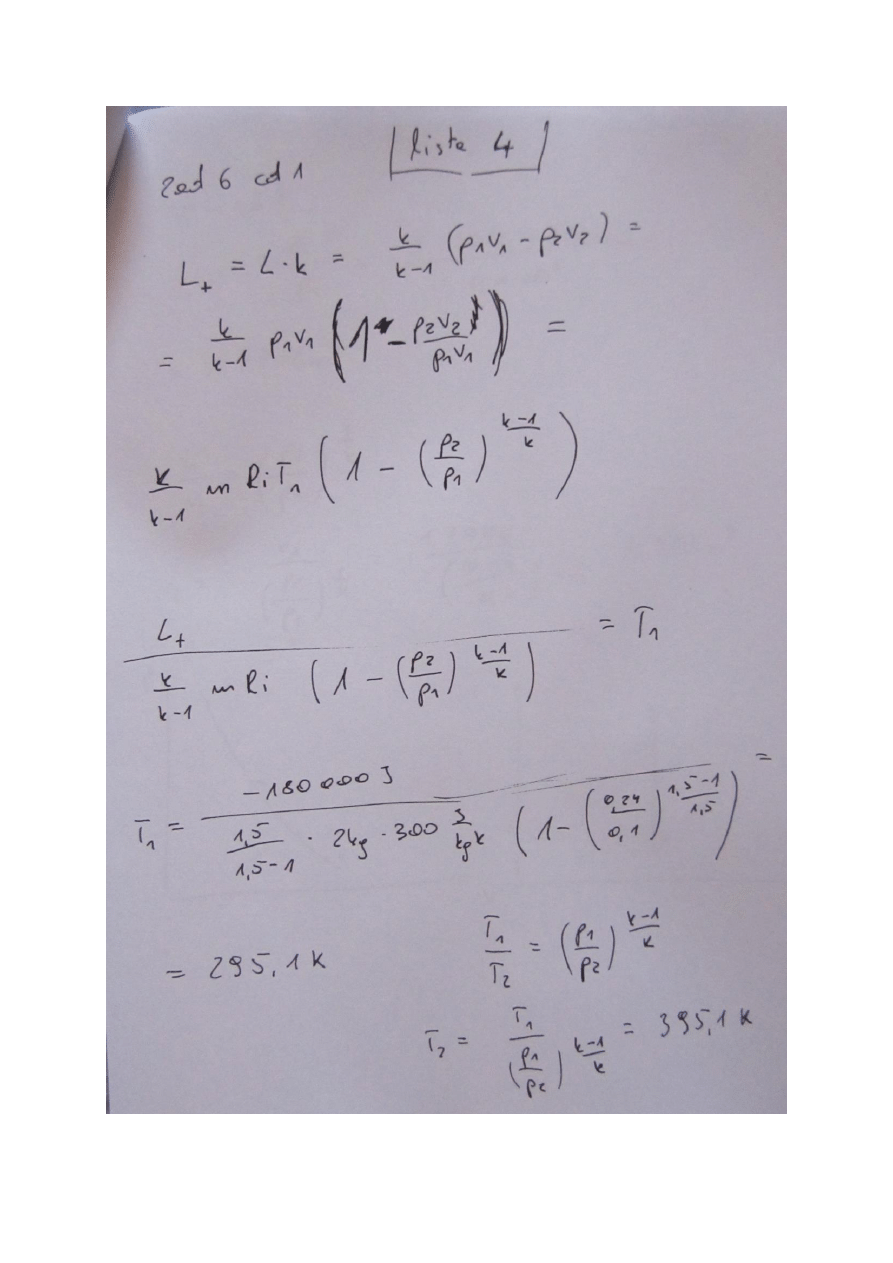 zad 6 cd 1 lista 4
L_t = L·k = k/(k-1) (p1v1 - p2v2) =
= k/(k-1) p1v1 (1 - p2v2/p1v1) =
k/(k-1) m Ri T1 (1 - (p2/p1)^((k-1)/k))
L_t / (k/(k-1) m Ri (1 - (p2/p1)^((k-1)/k))) = T1
T1 = -180 000 J / (1,5/(1,5-1) · 2kg · 300 J/kgK (1 - (0,24/0,1)^((1,5-1)/1,5))) =
= 295,1 K
T1/T2 = (p1/p2)^((k-1)/k)
T2 = T1/(p1/p2)^((k-1)/k) = 395,1 K